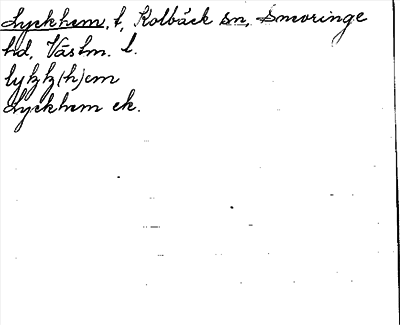 Lyckhem, t, Kolbäck sn, Snevringe
hd, Västm. l.
lykk(h)em
Lyckhem ek.